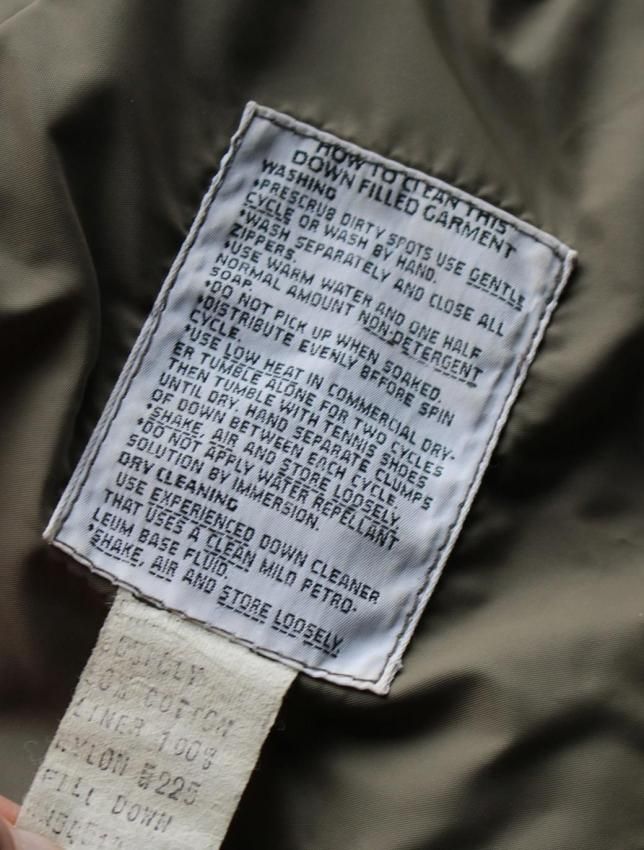 HOW TO CLEAN THIS
DOWN FILLED GARMENT
WASHING
*PRESCRUB DIRTY SPOTS USE GENTLE
CYCLE OR WASH BY HAND.
*WASH SEPARATELY AND CLOSE ALL
ZIPPERS.
*USE WARM WATER AND ONE HALF
NORMAL AMOUNT NON-DETERGENT
SOAP.
*DO NOT PICK UP WHEN SOAKED.
*DISTRIBUTE EVENLY BEFORE SPIN
CYCLE.
*USE LOW HEAT IN COMMERCIAL DRY-
ER TUMBLE ALONE FOR TWO CYCLES
THEN TUMBLE WITH TENNIS SHOES
UNTIL DRY. HAND SEPARATE CLUMPS
OF DOWN BETWEEN EACH CYCLE.
*SHAKE, AIR AND STORE LOOSELY.
*DO NOT APPLY WATER REPELLANT
SOLUTION BY IMMERSION.
DRY CLEANING
USE EXPERIENCED DOWN CLEANER
THAT USES A CLEAN MILD PETRO-
LEUM BASE FLUID.
*SHAKE, AIR AND STORE LOOSELY.
COTTON
LINER 100%
NYLON
FILL DOWN